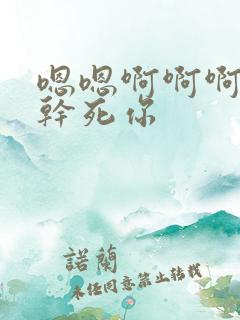 嗯嗯啊啊啊
幹死你
諾蘭
未经同意禁止转载